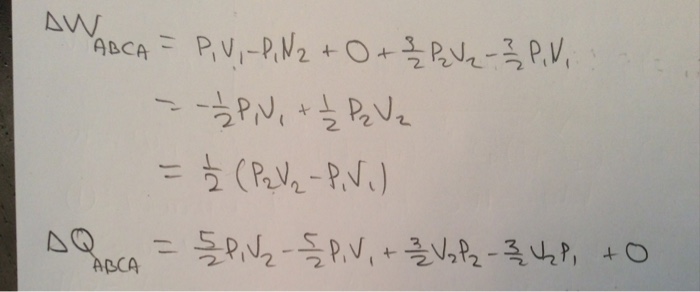 ΔW_ABCA = P₁V₁ - P₁V₂ + 0 + 3/2 P₂V₂ - 3/2 P₁V₁
= -1/2 P₁V₁ + 1/2 P₂V₂
= 1/2 (P₂V₂ - P₁V₁)
ΔQ_ABCA = 5/2 P₁V₂ - 5/2 P₁V₁ + 3/2 V₂P₂ - 3/2 V₂P₁ + 0